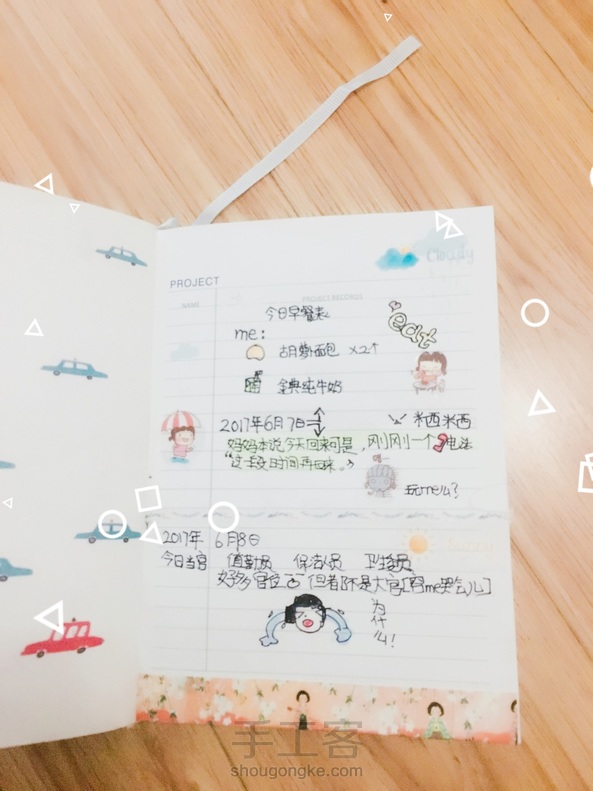 Cloudy
PROJECT
NAME PROJECT RECORDS
今日早餐表
me:
eat
胡萝卜面包 x2个
金典纯牛奶
2017年6月7日 米西米西
妈妈本说今天回来可是,刚刚一个电话
“这段时间再回来。”
玩me么?
2017年 6月8日
Sunny
今日当官 值勤员 保洁人员 卫生员
好多官位 但都不是大官[容me哭会儿]
为什么!
手工客
shougongke.com